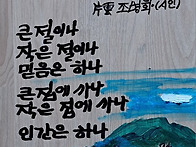 片雲 조영희 (시인)
큰 절이나
작은 절이나
믿음은 하나
큰 집에 사나
작은 집에 사나
인간은 하나